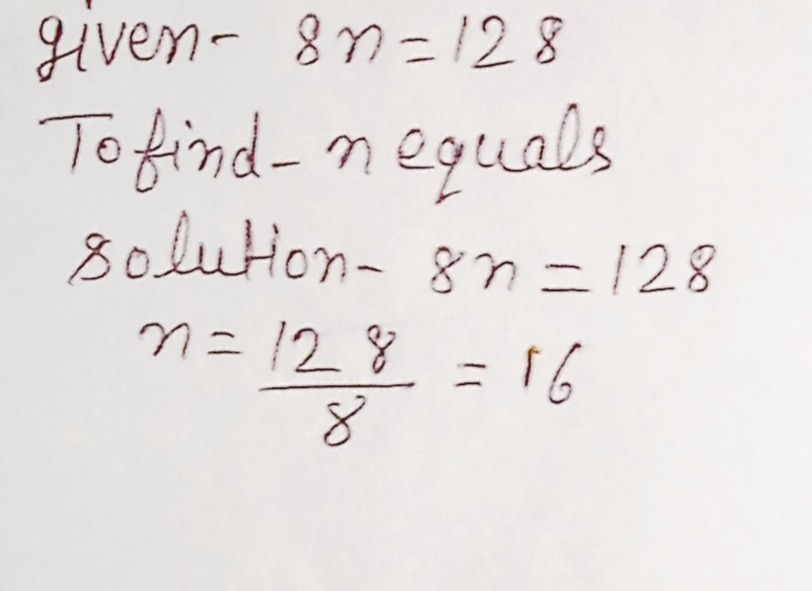 given- 8n=128
To find- n equals
solution- 8n=128
n= 128/8 = 16